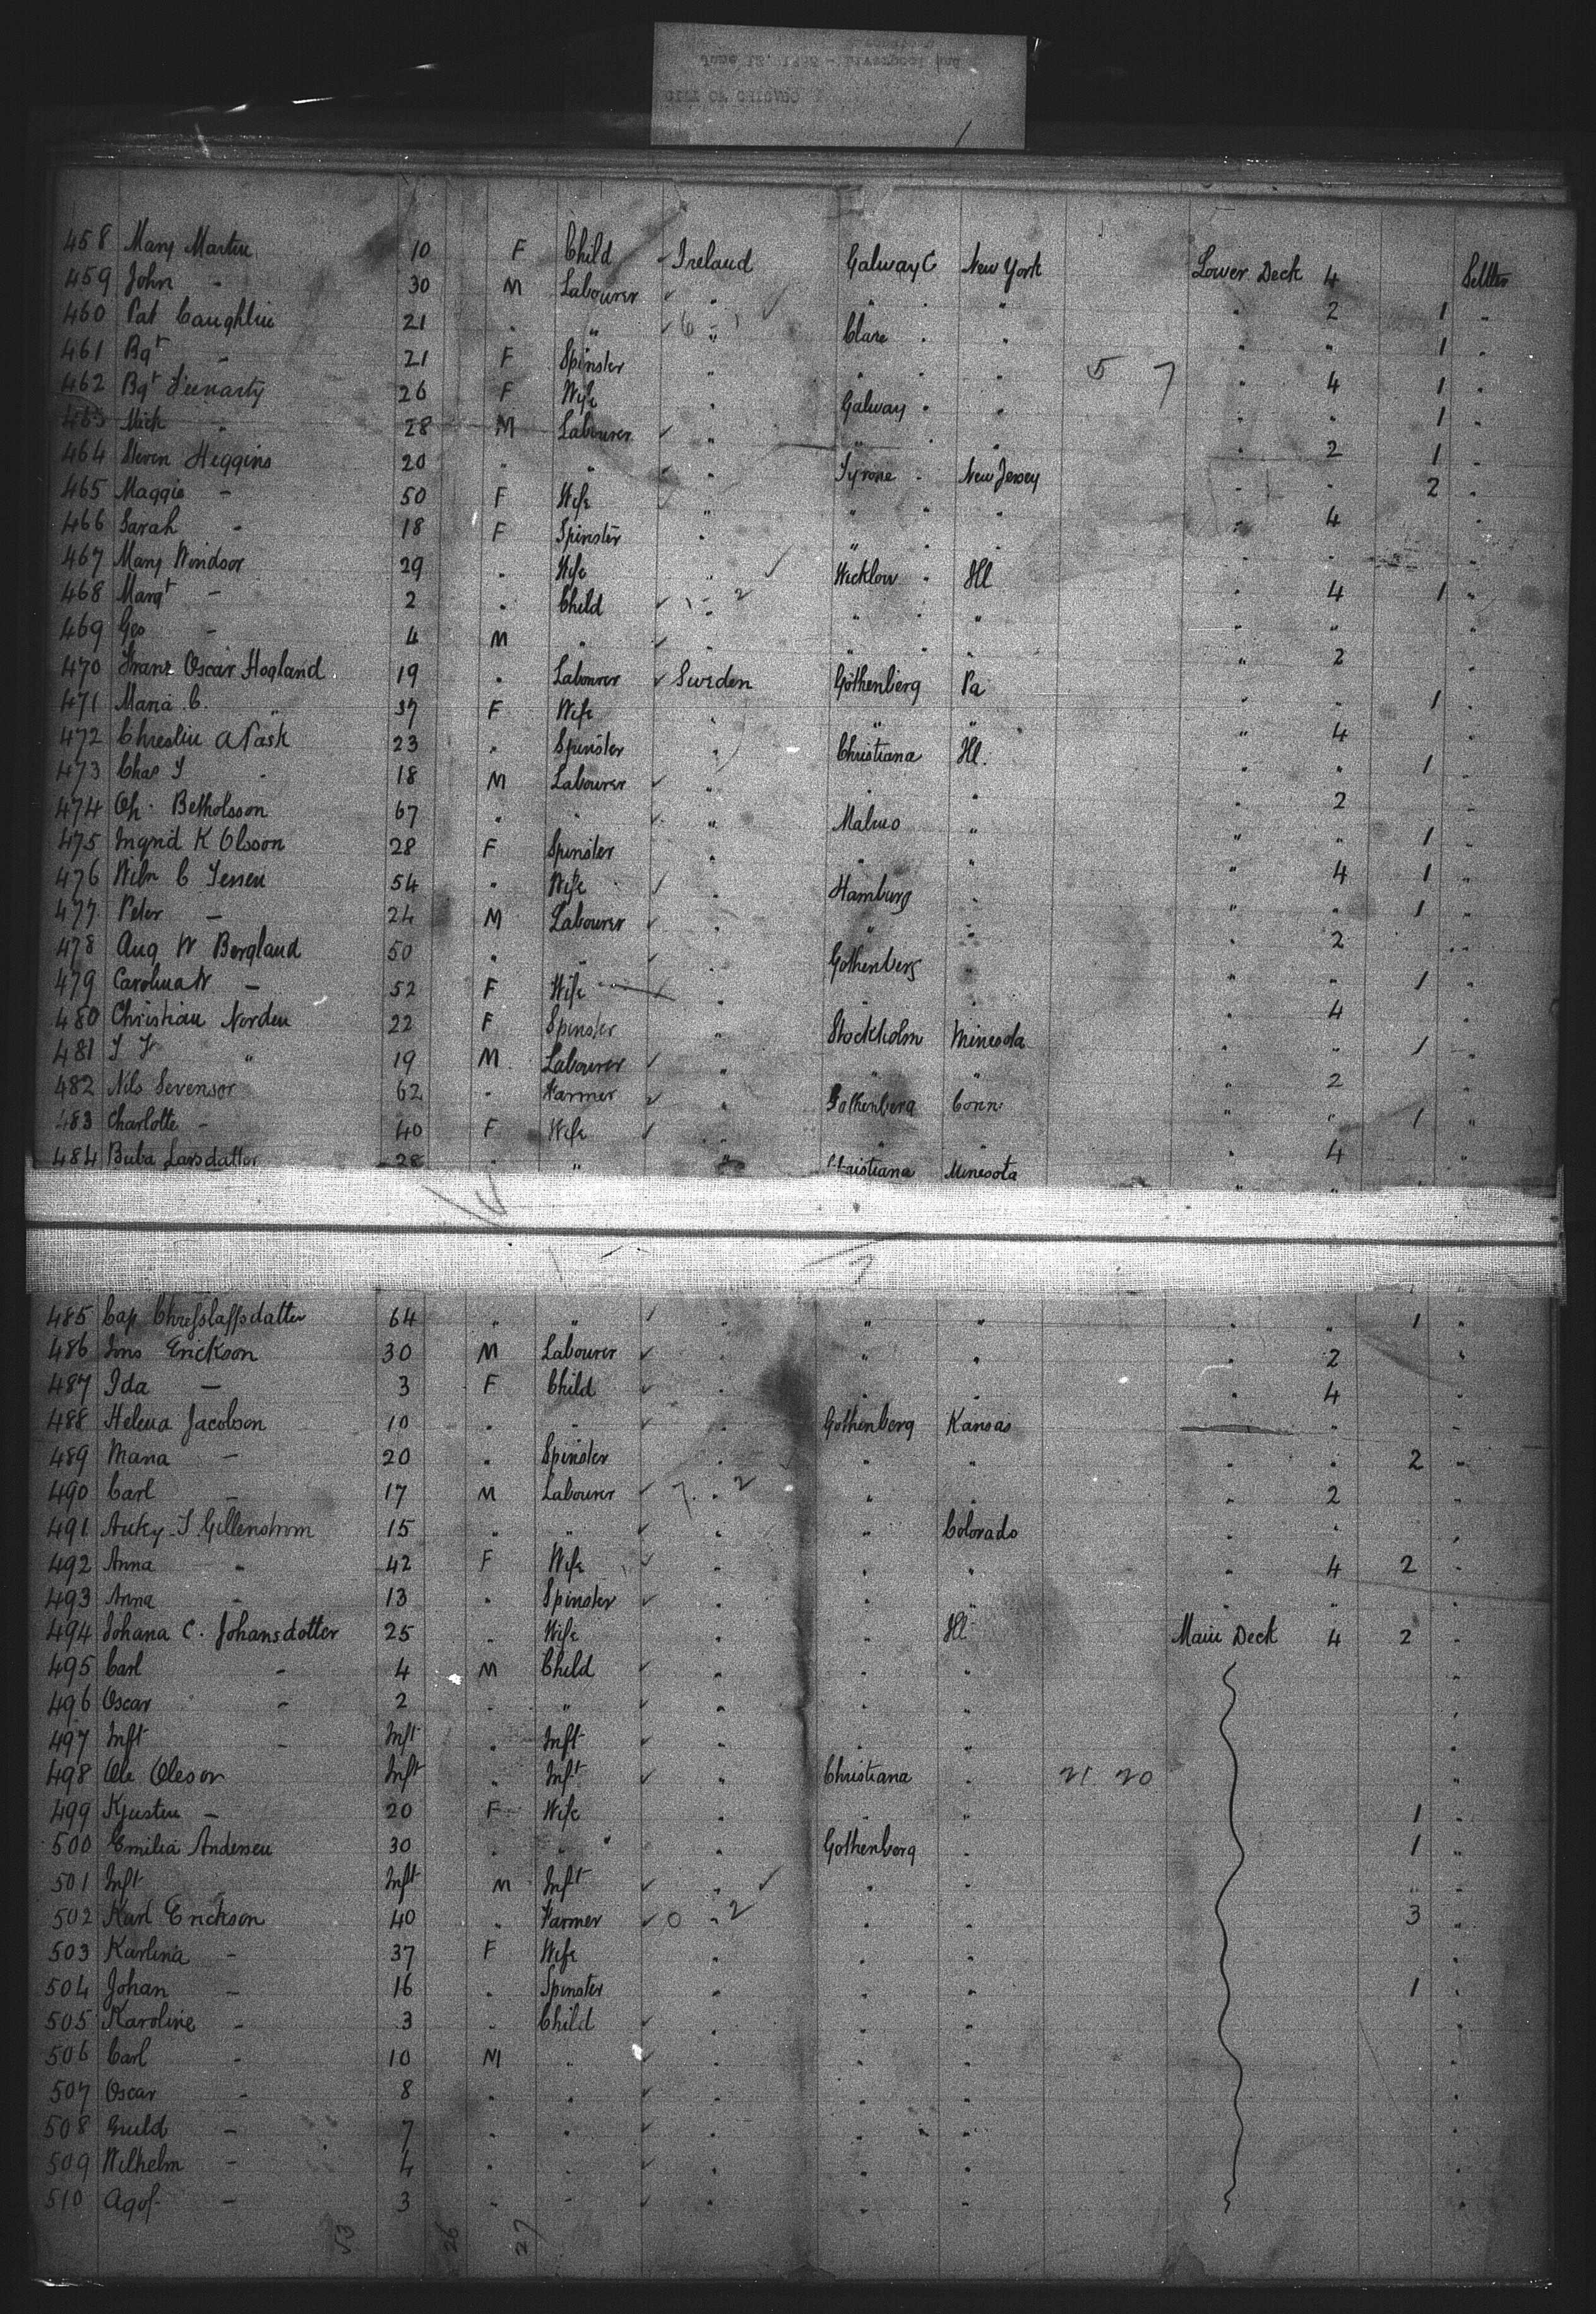 CITY OF CHICAGO
458 Mary Martin 10 F Child Ireland Galway C New York Lower Deck 4 Settler
459 John - 30 M Labourer " " " " 2 1 "
460 Pat Coughlin 21 " " " Clare " " " " 1 "
461 Bgt - 21 F Spinster " " " " 5 7 " 4 1 "
462 Bgt 26 F Wife " Galway " " " " 1 "
463 Mick " 28 M Labourer " " " " " 2 1 "
464 Steven Higgins 20 " " " Tyrone " New Jersey " " 2 "
465 Maggie - 50 F Wife " " " " " 4 "
466 Sarah - 18 F Spinster " " " " " " "
467 Mary Windsor 29 " Wife " Wicklow " Ill " 4 1 "
468 Margt - 2 " Child " " " " " " "
469 Geo - 4 M " " " " " " 2 "
470 Franz Oscar Hogland 19 " Labourer Sweden Gothenberg Pa " " 1 "
471 Maria C. " 37 F Wife " " " " 4 "
472 23 " Spinster " Christiana Ill. " " 1 "
473 Chas " 18 M Labourer " " " " 2 "
474 Betholsson 67 " " " Malmo " " " 1 "
475 Ingrid K Olsson 28 F Spinster " " " " 4 1 "
476 C Jessen 54 " Wife " Hamburg " " " 1 "
477 Peter - 24 M Labourer " " " " 2 "
478 Aug W Bergland 50 " " " Gothenberg " " " 1 "
479 Carolina W - 52 F Wife " " " " 4 "
480 Christian Norden 22 F Spinster " Stockholm Minesota " " 1 "
481 " 19 M Labourer " " " " 2 "
482 Nils Sevenson 62 " Farmer " Gothenberg Conn " " 1 "
483 Charlotte - 40 F Wife " " " " 4 "
484 Larsdatter 28 " " " Christiana Minesota " "
485 64 " " " " " " " 1 "
486 Erickson 30 M Labourer " " " " 2 "
487 Ida - 3 F Child " " " " 4 "
488 Helena Jacobson 10 " " " Gothenberg Kansas " "
489 Maria - 20 " Spinster " " " " " 2 "
490 Carl - 17 M Labourer 7 " 2 " " " 2 "
491 Gillenstrom 15 " " " " Colorado " " "
492 Anna " 42 F Wife " " " " 4 2 "
493 Anna " 13 " Spinster " " " " " "
494 Johana C. Johansdotter 25 " Wife " " Ill Main Deck 4 2 "
495 Carl - 4 M Child " " " "
496 Oscar - 2 " " " " " "
497 Inft - Inft " Inft " " " "
498 Ole Oleson Inft " Inft " Christiana " 21 20 "
499 - 20 F Wife " " " 1 "
500 Emilia Andersen 30 " " " Gothenberg " 1 "
501 Inft Inft M Inft " " " "
502 Karl Erickson 40 " Farmer 0 " 2 " " 3 "
503 Karlina - 37 F Wife " " " "
504 Johan - 16 " Spinster " " " 1 "
505 Karoline - 3 " Child " " " "
506 Carl - 10 M " " " " "
507 Oscar - 8 " " " " " "
508 - 7 " " " " " "
509 Wilhelm - 4 " " " " " "
510 - 3 " " " " " "
53 26 27